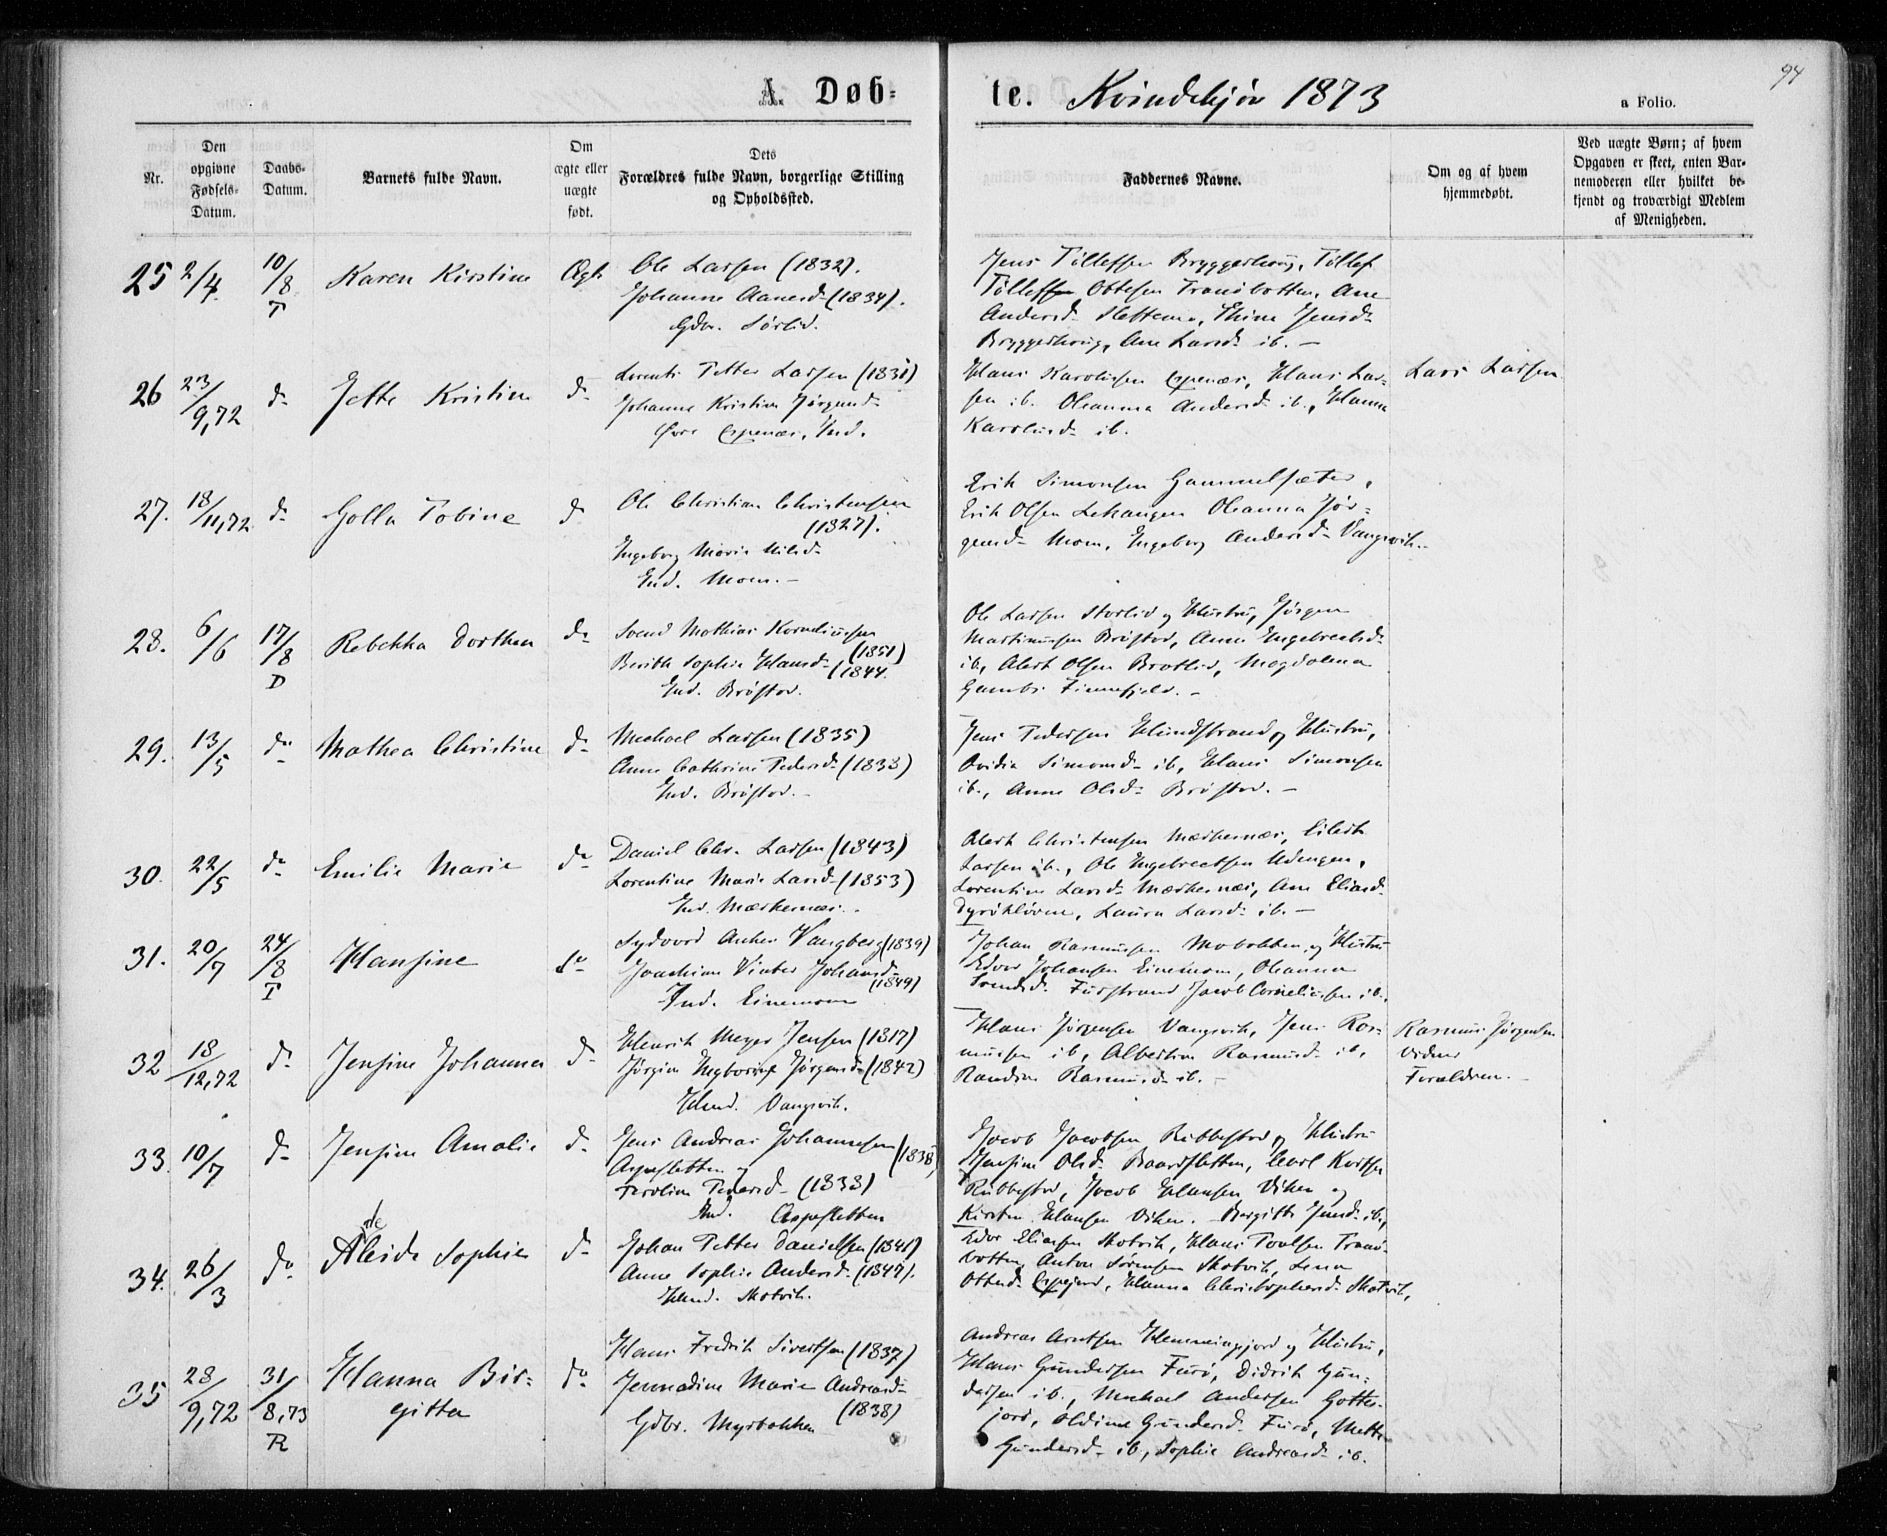 94
A. Døb-
te. Kvindekjøn 1873
a Folio.
Nr.
Den opgivne Fødsels-Datum.
Daabs-Datum.
Barnets fulde Navn.
Om ægte eller uægte født.
Dets Forældres fulde Navn, borgerlige Stilling og Opholdssted.
Faddernes Navne.
Om og af hvem hjemmedøbt.
Ved uægte Børn; af hvem Opgaven er skeet, enten Barnemoderen eller hvilket bekjendt og troværdigt Medlem af Menigheden.
25 2/4 10/8 T Karen Kirstine Ægte
Ole Larsen (1832).
Johanne Aanesd. (1834).
Gdbr. Sørlid.
Jens Tollefsen Bryggerhoug, Tollef
Tollefsen Ottesen Tranøbotten, Ane
Andersd. Slettemo, Jensd.
Bryggerhoug, Ane Larsd. ib. —
26 23/9,72 do Jette Kristine do
Lorents Petter Larsen (1831)
Johanne Kristine Jørgensd.
Espenæs, Ind.
Hans Karolusen Espenæs, Hans Lar-
sen ib. Oleanna Andersd. ib., Hanna
Karolusd. ib.
Lars Larsen
27. 18/11,72 do Golla Tobine do
Ole Christian Christensen
(1827).
Ingeborg Marie Nilsd.
Ind. Moen. —
Erik Simonsen Gammelsæter,
Erik Olsen Leikangen Oleanna Jør-
gensd. Moen, Ingeborg Andersd. Vangsvik. —
28. 6/6 17/8 D Rebekka Dorthea do
Svend Mathias Korneliussen
(1851)
Berith Sophie Hansd. (1844.
Ind. Brøstad.
Ole Larsen Storlid og Hustru, Jørgen
Martinussen Brøstad, Anne Engebrectsd.
ib, Alert Olsen Bratlid, Magdalena
Finnefjeld. —
29. 13/5 do Mathea Christine do
Mechael Larsen (1835)
Anne Cathrine Pedersd. (1833)
Ind. Brøstad. —
Jens Pedersen Hundstrand og Hustru,
Ovidia Simonsd. ib, Hans Simonsen
ib., Anne Olsd. Brøstad. —
30. 22/5 do Emilie Marie do
Daniel Chr. Larsen (1843)
Lorentine Marie Larsd. (1853)
Ind. Mærkenæs.
Alert Christensen Mærkenæs, Eilert
Larsen ib., Ole Engebrectsen Udengen,
Lorentine Larsd. Mærkenæs, Ane Eliasd.
Dyrøkløven, Laura Larsd. ib. —
31. 20/7 24/8 T Hansine do
Sydvard Anker Vangberg (1839)
Joachime Vinter Johansd.
(1849)
Ind. Einemoen
Johan Rasmussen Mobakken og Hustru
Edvor Johansen Einemoen, Oleanna
Svendsd. Furstrand Jacob Corneliussen ib.
32 18/12,72 do Jensine Johanna do
Henrik Meyer Jensen (1817)
Jørgine Ingborine Jørgensd. (1842)
Hmd. Vangsvik.
Hans Jørgensen Vangsvik, Jens Ras-
mussen ib, Albertine Rasmusd. ib,
Randine Rasmusd. ib. —
Rasmus Jørgensen
Vidner
Forældrene. —
33. 10/7 do Jensine Amalie do
Jens Andreas Johannesen (1838)
Aspesletten og
Karoline Pedersd. (1833)
Ind. Aspesletten
Jacob Jacobsen Rubbestad og Hustru
Jensine Olsd. Baardsletten, Carl
Rubbestad, Jacob Hansen Viken og
Kirsten Hansen Viken. Bergitte Jensd. ib,
34. 26/3 do Aleide Sophie do
Johan Petter Danielsen (1841)
Anne Sophie Andersd. (1847).
Hmd. Skotvik.
Edvor Eliasen Skotvik, Hans Povlsen Tranø-
botten, Anton Sørensen Skotvik, Lena
Ottesd. Espejord, Hanna Christophersd. Skotvik,
35 28/9,72 31/8,73 R Hanna Bir-
gitta do
Hans Fredrik Sivertsen (1837)
Jennadine Marie Andreasd.
(1838)
Gdbr. Myrbakken
Andreas Arntsen Hemmingsjord og Hustru,
Hans Gundersen Furø, Didrik Gun-
dersen ib., Michael Andersen Gottes-
jord, Oldine Gundersd. Furø, Mette
Gundersd. ib, Sophie Andreasd. ib.